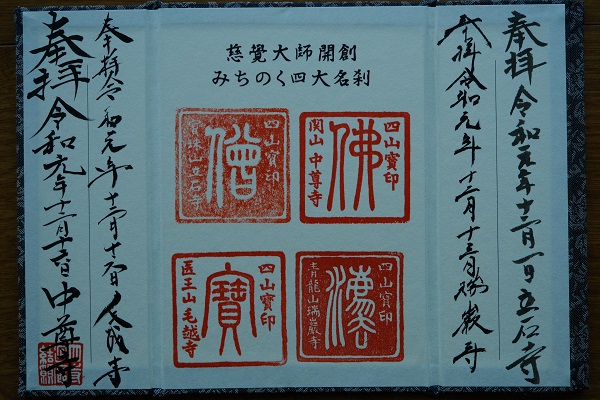 奉拝 令和元年十二月一日 立石寺
奉拝 令和元年十二月十三日 瑞巌寺
慈覺大師開創
みちのく四大名刹
四山寶印
佛
関山 中尊寺
四山寶印
僧
寳珠山立石寺
四山寶印
灋
青龍山瑞巖寺
四山寶印
寶
医王山 毛越寺
奉拝 令和元年十二月十六日 毛越寺
奉拝 令和元年十二月十六日 中尊寺